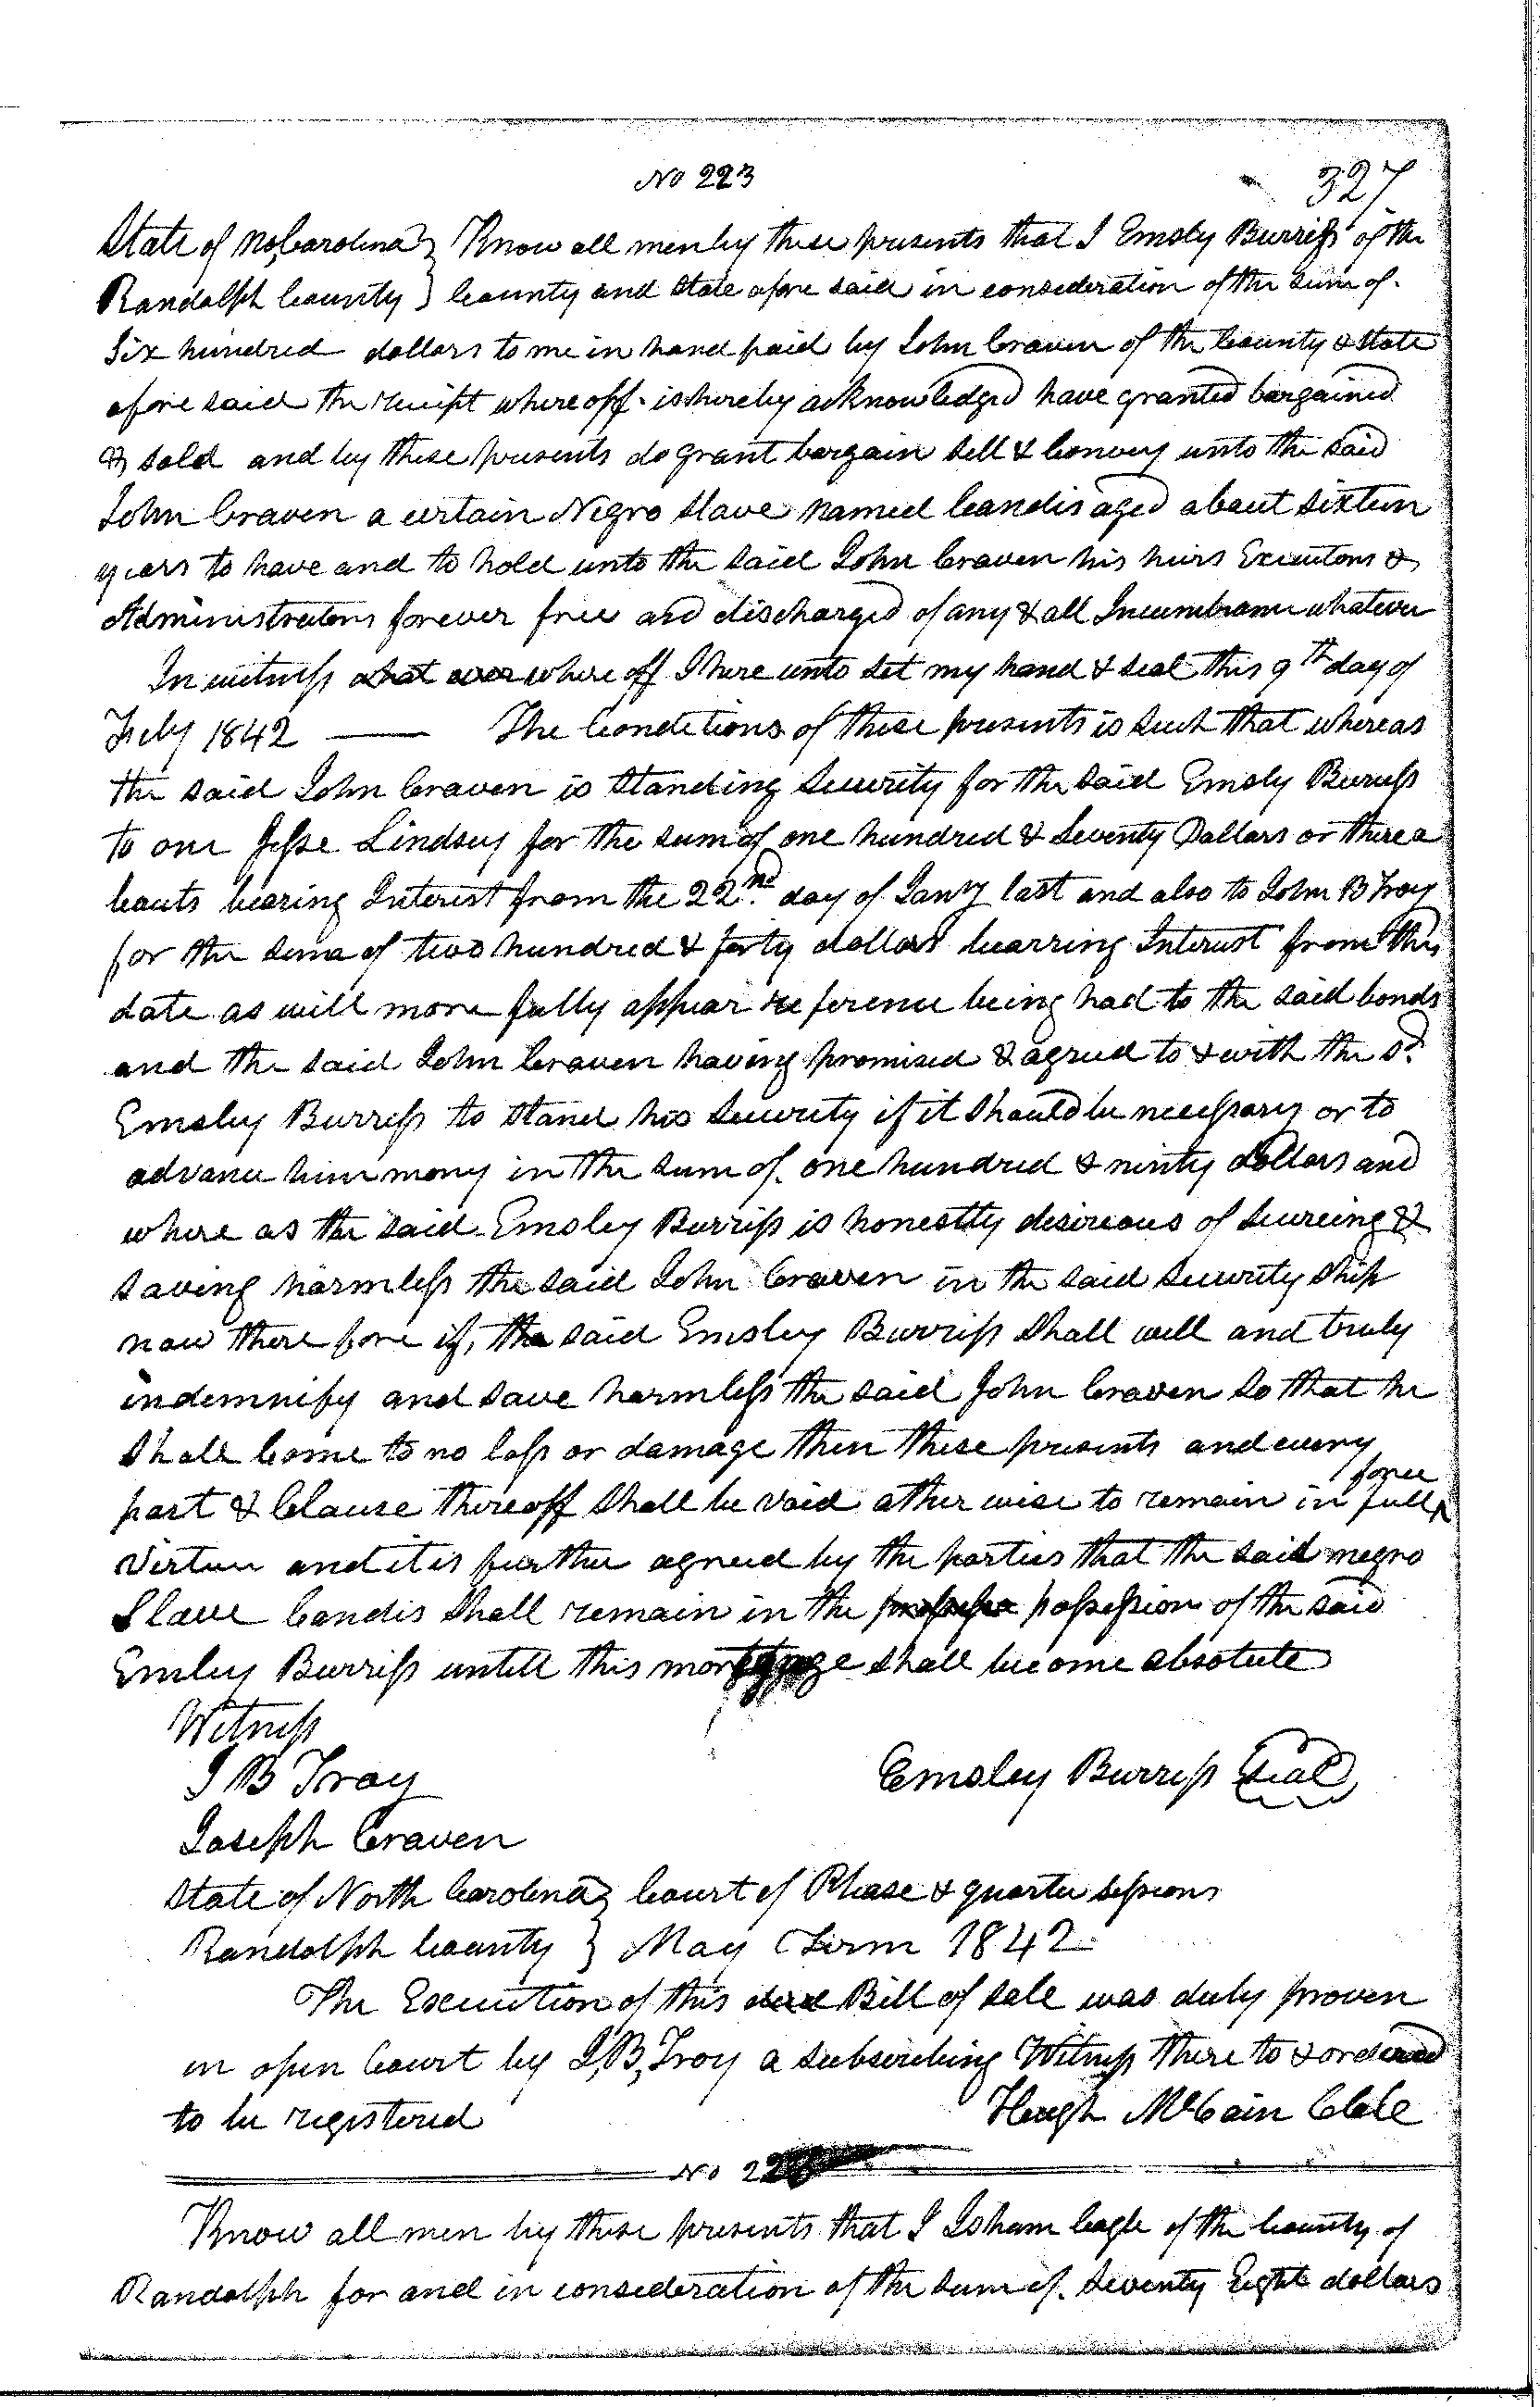 No 223
327
State of No, Carolina } Know all men by these presents that I Emsly Burriss of the
Randolph County } County and State afore said in consideration of the sum of
Six hundred dollars to me in hand paid by John Craven of the County & State
afore said the receipt whereoff is hereby acknowledged have granted bargained
& sold and by these presents do grant bargain sell & Convey unto the said
John Craven a certain Negro slave named Candis aged about sixteen
years to have and to hold unto the said John Craven his heirs Executors &
Administrators forever free and discharged of any & all Incumbrance whatever
In witness what ever where off I here unto set my hand & seal this 9th day of
Feby 1842 — The Conditions of these presents is such that whereas
the said John Craven is standing security for the said Emsly Burriss
to one Jesse Lindsey for the sum of one hundred & seventy Dollars or therea
bouts bearing Interest from the 22nd day of Jany last and also to John B Troy
for the sum of two hundred & forty dollars bearring Interest from this
date as will more fully appear reference being had to the said bonds
and the said John Craven having promised & agreed to & with the sd
Emsley Burress to stand his security if it should be necessary or to
advance him mony in the sum of one hundred & ninty dollars and
where as the said Emsley Burriss is honestly desireous of secureing &
saving harmless the said John Craven in the said security ship
now there fore if, the said Emsley Burriss shall well and truly
indemnify and save harmless the said John Craven so that he
shall Come to no loss or damage then these presents and every
part & Clause thereoff shall be void other wise to remain in full force
virtue and it is further agreed by the parties that the said negro
Slave Candis shall remain in the possession of the said
Emley Burriss untill this mortgage shall become absolute
Witness
J B Troy
Emsley Burriss Seal
Joseph Craven
State of North Carolina } Court of Please & quarter sessions
Randolph County } May Term 1842
The Execution of this deed Bill of sale was duly proven
in open Court by J, B, Troy a subscribing Witness there to & ordered
to be registered
Hugh McCain Clk
No
Know all men by these presents that I Isham Cagle of the County of
Randolph for and in consideration of the sum of seventy Eight dollars